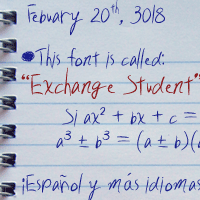 Febuary 20th, 3018
•This font is called:
"Exchange Student"
Si ax² + bx + c =
a³ ± b³ = (a ± b)(
¡Español y más idiomas